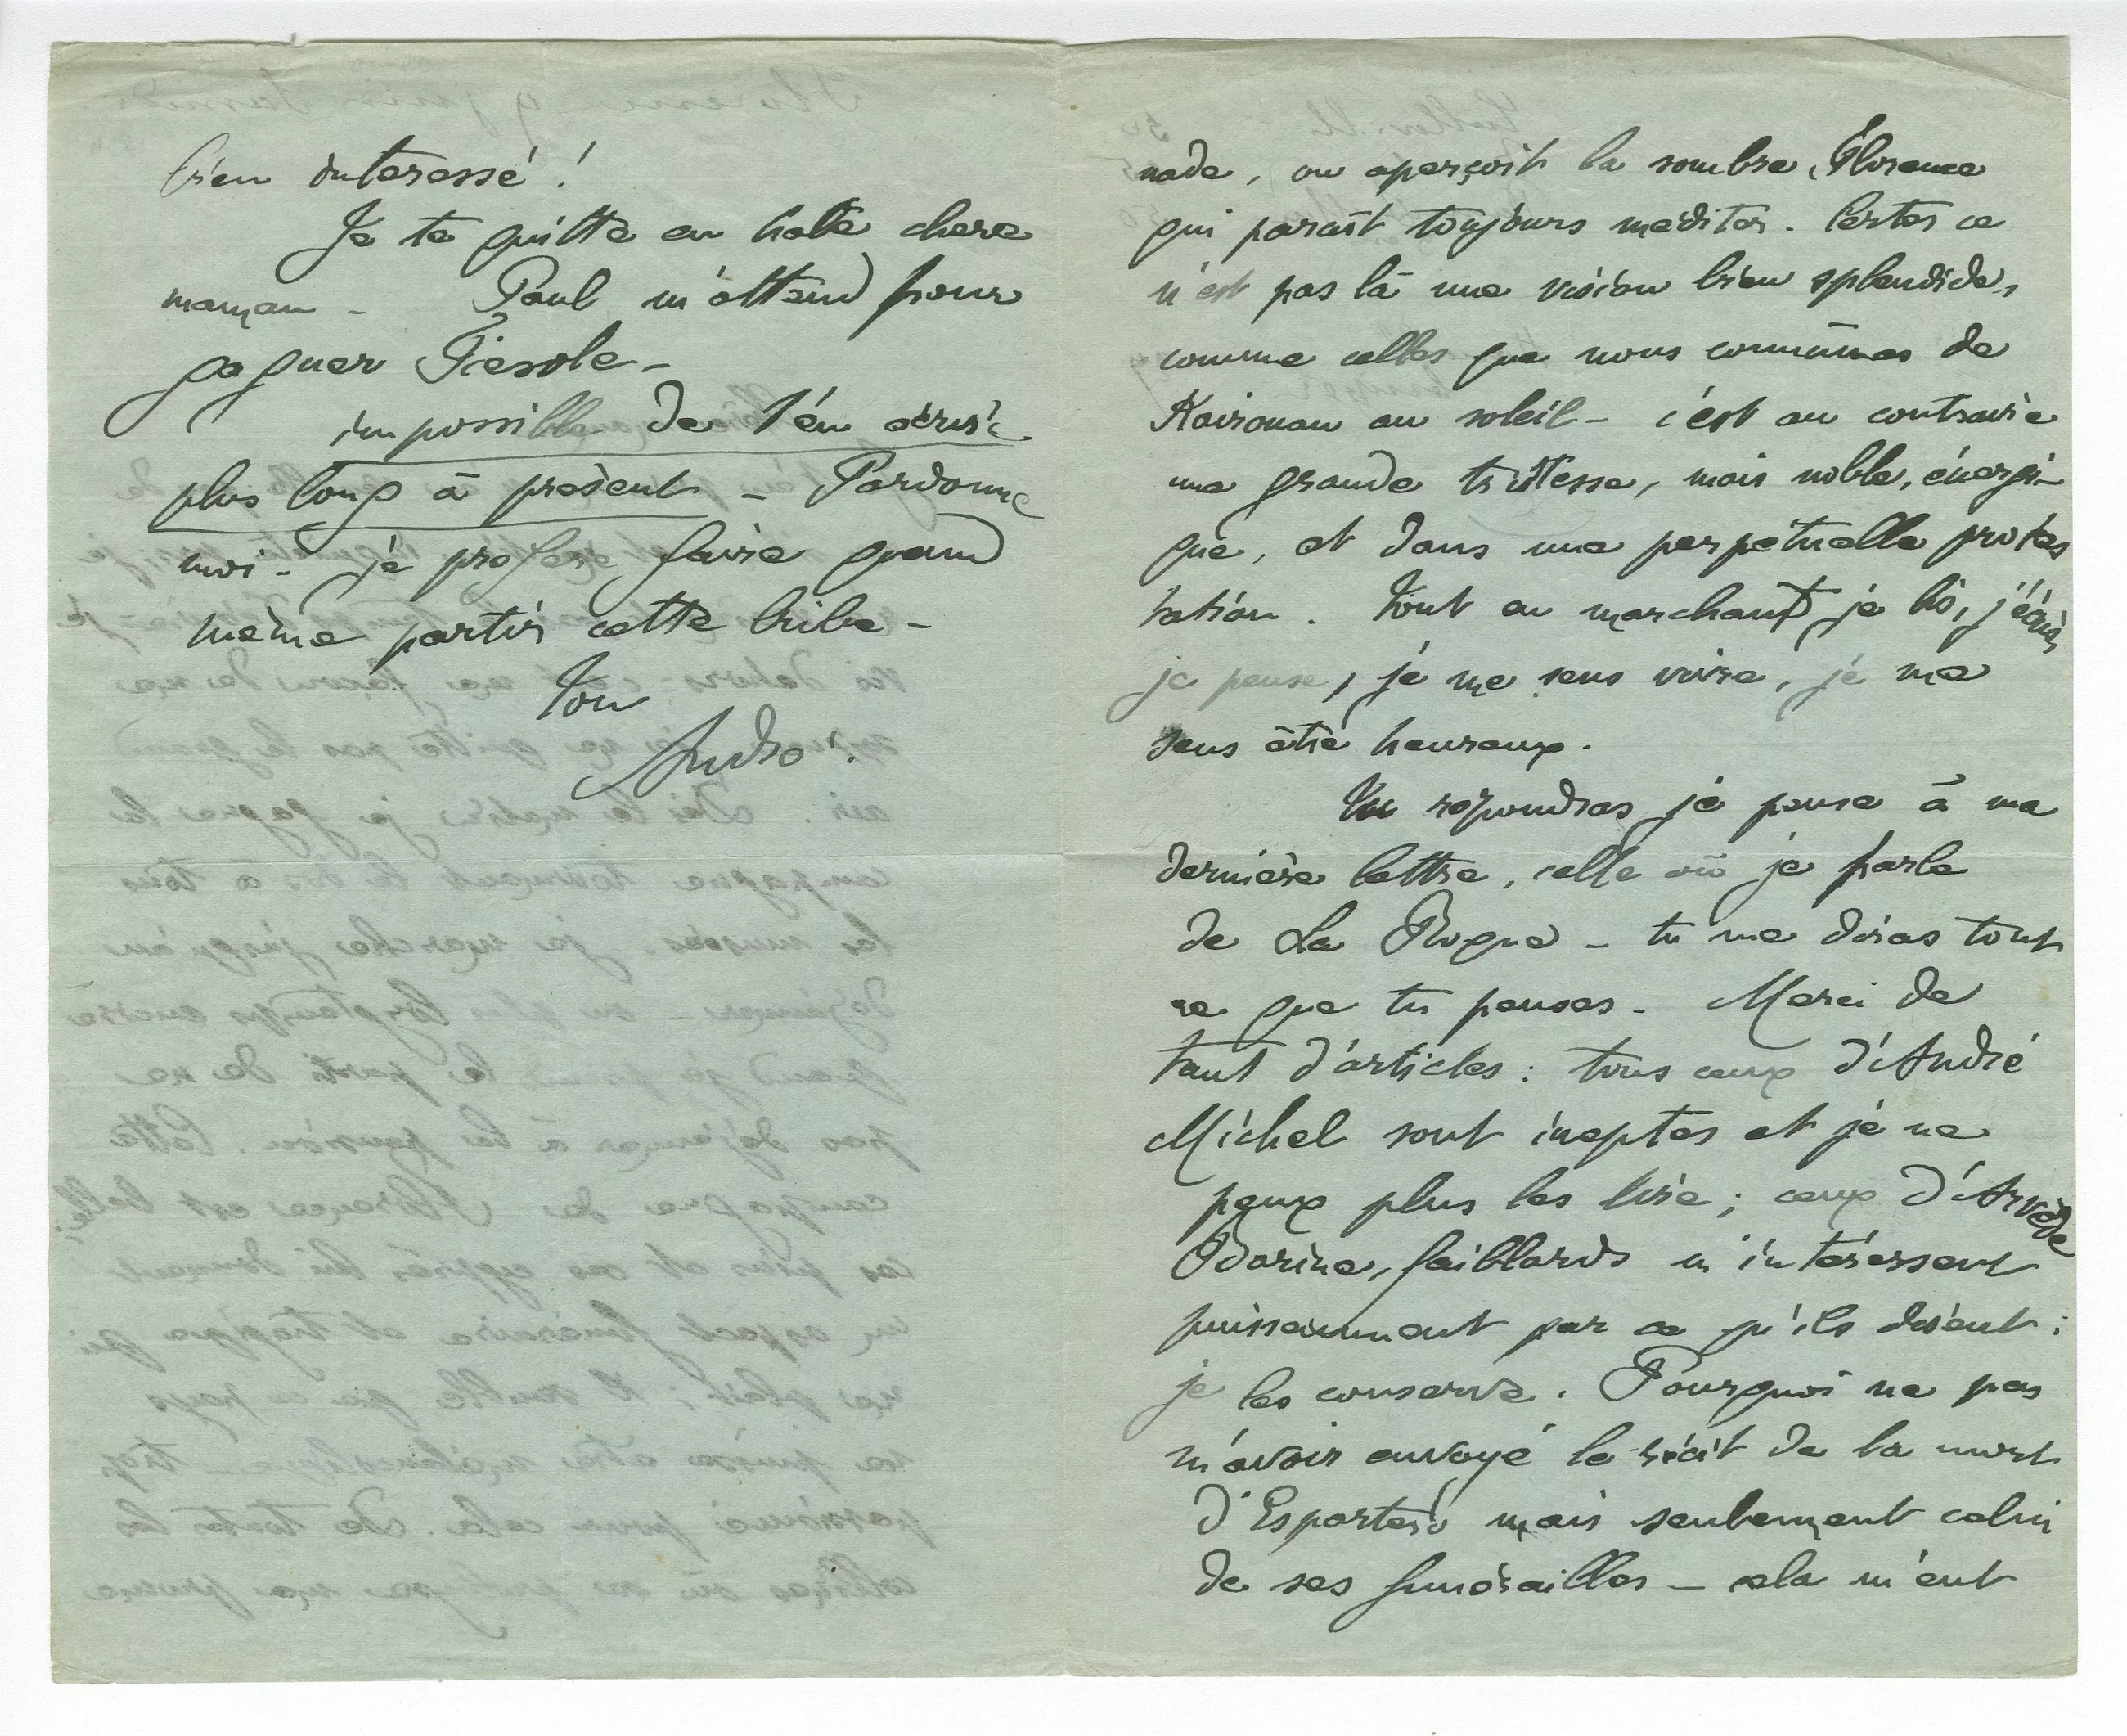 nade, on aperçoit la sombre Florence
qui paraît toujours méditer. Certes ce
n'est pas là une vision bien splendide,
comme celles que nous connûmes de
Kairouan au soleil - c'est au contraire
une grande tristesse, mais noble, énergi-
que, et dans une perpétuelle protes
tation. Tout en marchant je lis, j'écris,
je pense, je me sens vivre, je me
sens être heureux.
Tu répondras je pense à ma
dernière lettre, celle où je parle
de La Rogue - tu me diras tout
ce que tu penses. Merci de
tant d'articles : tous ceux d'André
Michel sont ineptes et je ne
peux plus les lire ; ceux d'Arvède
Barine, Gaillards m'intéressent
puissamment par ce qu'ils disent :
je les conserve. Pourquoi ne pas
m'avoir envoyé le récit de la mort
d'Espartero mais seulement celui
de ses funérailles - cela m'eut
bien interessé !
Je te quitte en hate chere
maman - Paul m'attend pour
gagner Fiesole -
impossible de t'en écrire
plus long à présent - Pardonne
moi - je prefere faire quand
même partir cette bribe -
Ton
André.